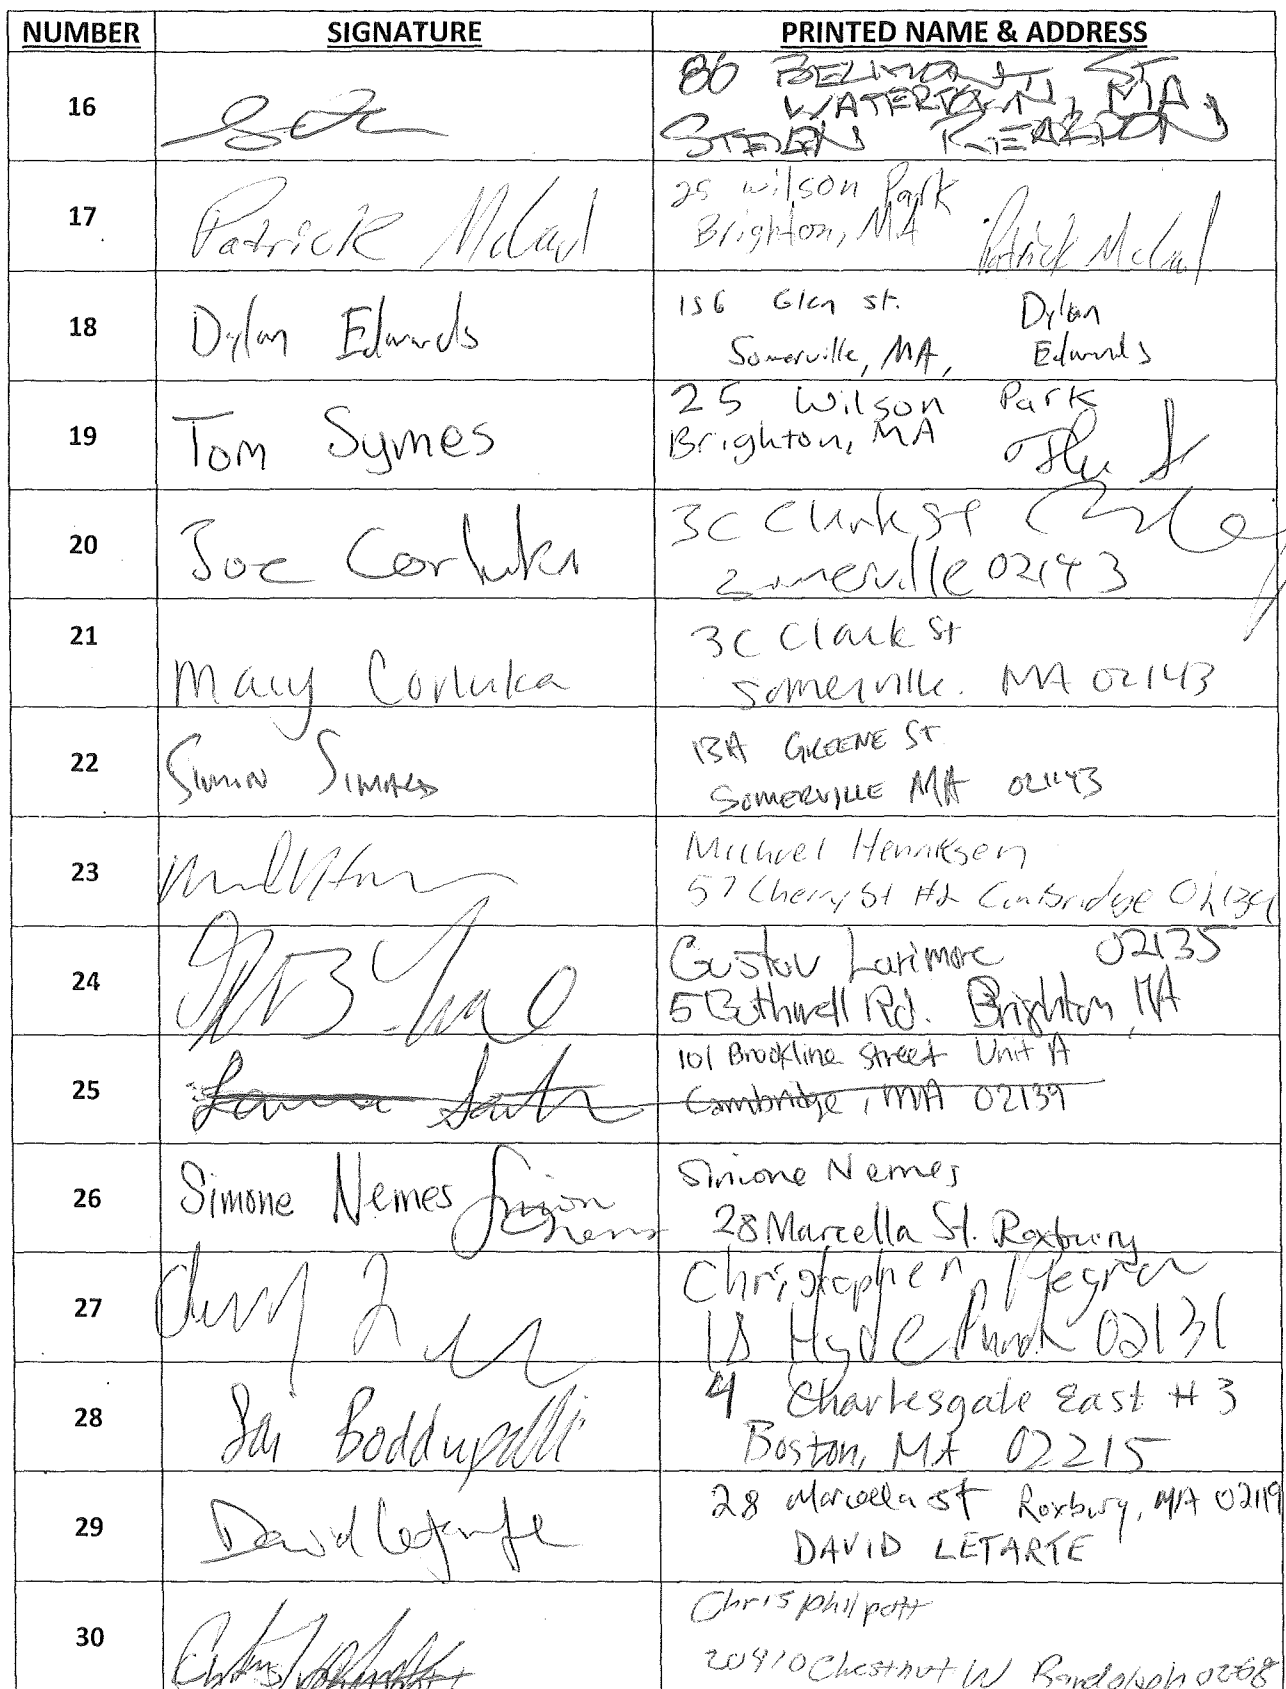 NUMBER SIGNATURE PRINTED NAME & ADDRESS
16
86 BELMONT ST
WATERTOWN, MA,
STEVEN REARDON
17 Patrick McCaul
25 Wilson Park
Brighton, MA Patrick McCaul
18 Dylan Edwards
156 Glen St. Dylan
Somerville, MA, Edwards
19 Tom Symes
25 Wilson Park
Brighton, MA
20 Joe Corluka
3C Clark St
Somerville 02143
21 Mary Corluka
3C Clark St
Somerville. MA 02143
22 Simon
13A GREENE ST
SOMERVILLE MA 02143
23
Michael Henriksen
57 Cherry St #2 Cambridge 02139
24
Gustav Larimore 02135
5 Bothwell Rd. Brighton, MA
25 Laura
101 Brookline Street Unit A
Cambridge, MA 02139
26 Simone Nemes Simone Nemes
Simone Nemes
28 Marcella St. Roxbury
27
Christopher Negron
18 Hyde Park 02131
28 Sai Boddupalli
4 Charlesgate East #3
Boston, MA 02215
29 David Letarte
28 Marcella St Roxbury, MA 02119
DAVID LETARTE
30
Chris Philpott
Chestnut W Randolph